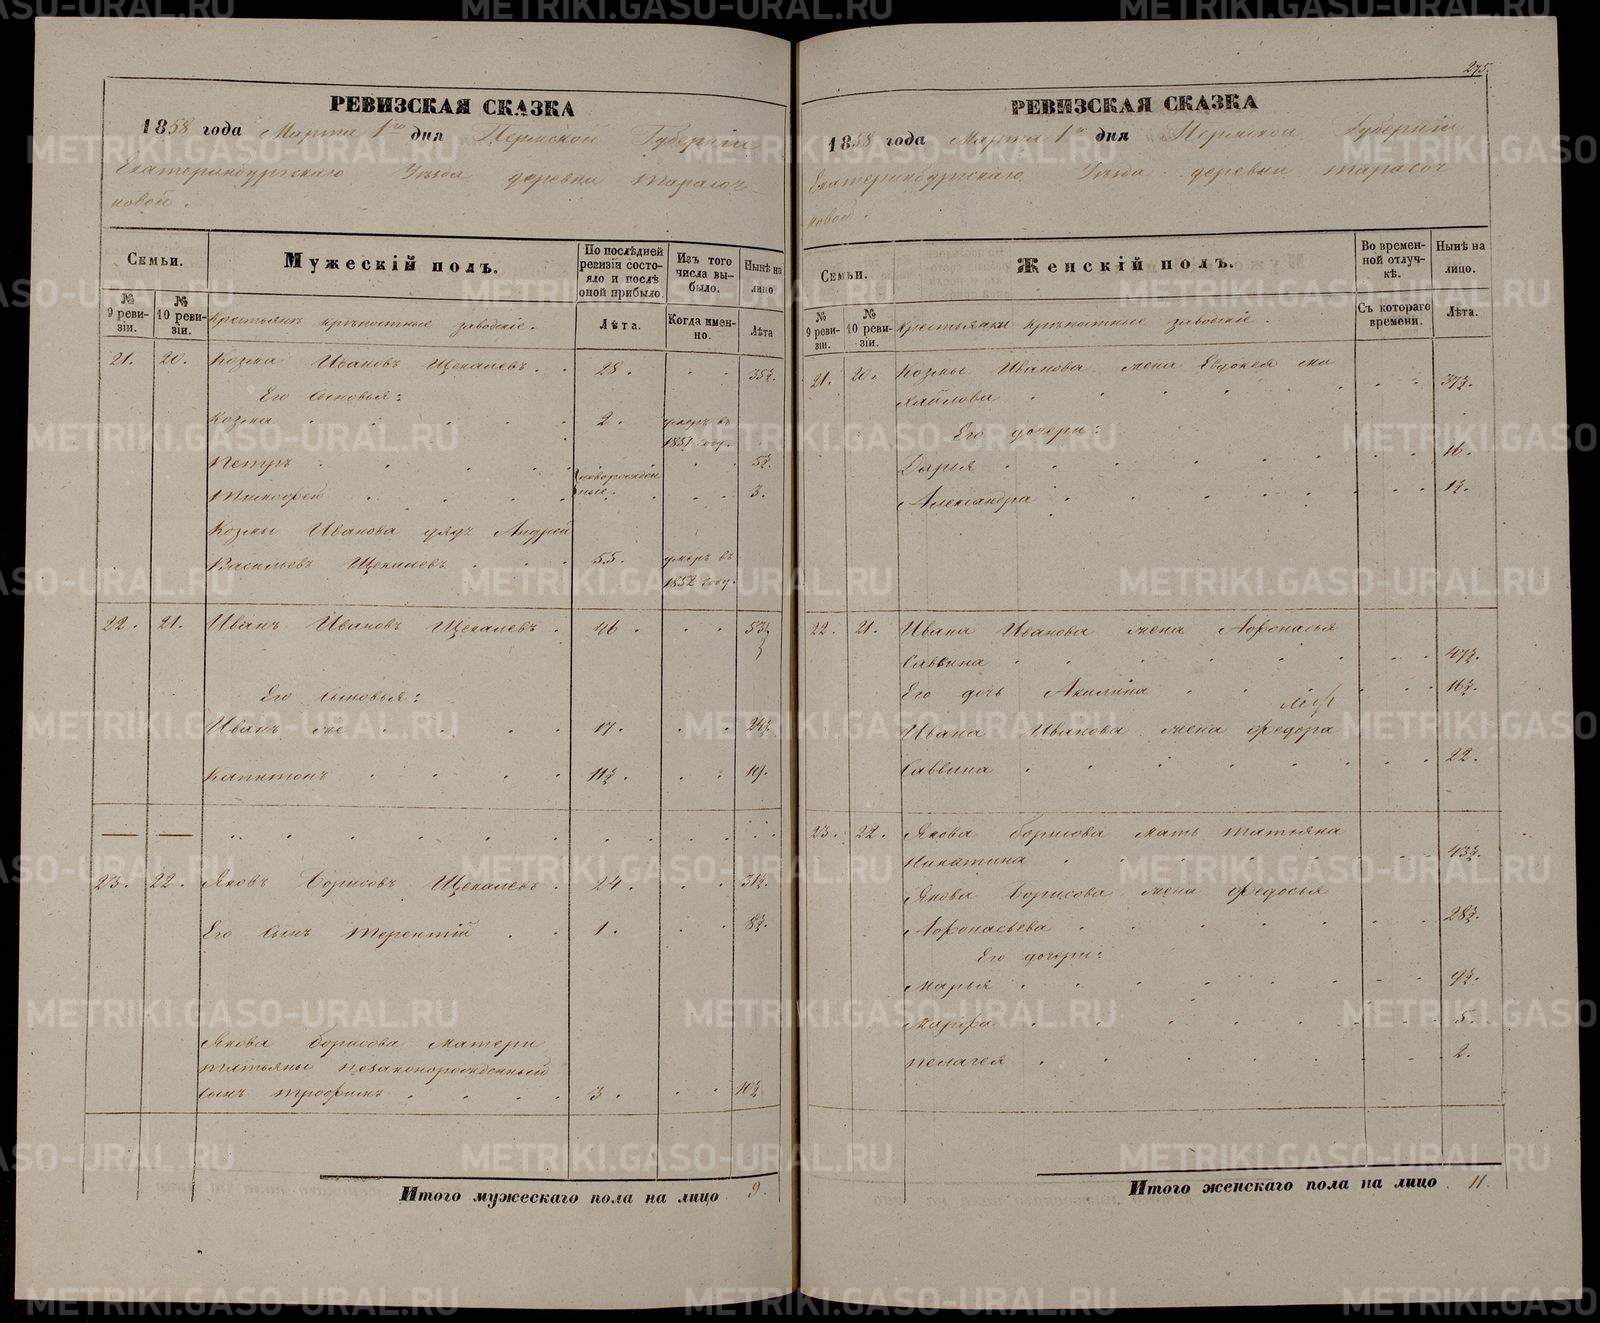 275.
РЕВИЗСКАЯ СКАЗКА
1858 года Марта 1го дня Пермской Губерніи
Екатеринбургскаго Уѣзда деревни Тарасоч-
новой.
Семьи.
№ 9 ревизіи.
№ 10 ревизіи.
Мужескій полъ.
Крестьянъ крѣпостные заводскіе.
По послѣдней ревизіи состояло и послѣ оной прибыло.
Лѣта.
Изъ того числа выбыло.
Когда именно.
Нынѣ на лицо
Лѣта
21. 20. Козма Ивановъ Щекалевъ. 28. 35½.
Его сыновья:
Козма 2. умеръ въ
1851 году.
Петръ новорожден 5½.
Тимофей ные. 3.
Козмы Иванова дядя Андрей
Васильевъ Щекалевъ 55. умеръ въ
1852 году.
22. 21. Иванъ Ивановъ Щекалевъ. 46. 53½
Его сыновья:
Иванъ же 17. 24½.
Капитонъ 11½. 19.
23. 22. Яковъ Борисовъ Щекалевъ. 24. 31½.
Его сынъ Терентій 1. 8½.
Якова Борисова матери
Татьяны незаконорожденный
сынъ Трофимъ 3. 10½
Итого мужескаго пола на лицо 9.
РЕВИЗСКАЯ СКАЗКА
1858 года Марта 1го дня Пермской Губерніи
Екатеринбургскаго Уѣзда деревни Тарасоч
новой.
Семьи.
№ 9 ревизіи.
№ 10 ревизіи.
Женскій полъ.
Крестьянки крѣпостные заводскіе.
Во временной отлучкѣ.
Съ котораго времени.
Нынѣ на лицо.
Лѣта.
21. 20. Козмы Иванова жена Евдокея Ми
хайлова 37½.
Его дочери:
Дарья 16.
Александра 1½.
22. 21. Ивана Иванова жена Афонасья
Саввина 47½.
Его дочь Акилина 16½.
Ивана Иванова жена Федора
Саввина 22.
23. 22. Якова Борисова мать Татьяна
Никитина 43½.
Якова Борисова жена Федосья
Афонасьева 28½.
Его дочери:
Марья 9½.
Марфа 5.
Пелагея 2.
Итого женскаго пола на лицо 11.
METRIKI.GASO-URAL.RU